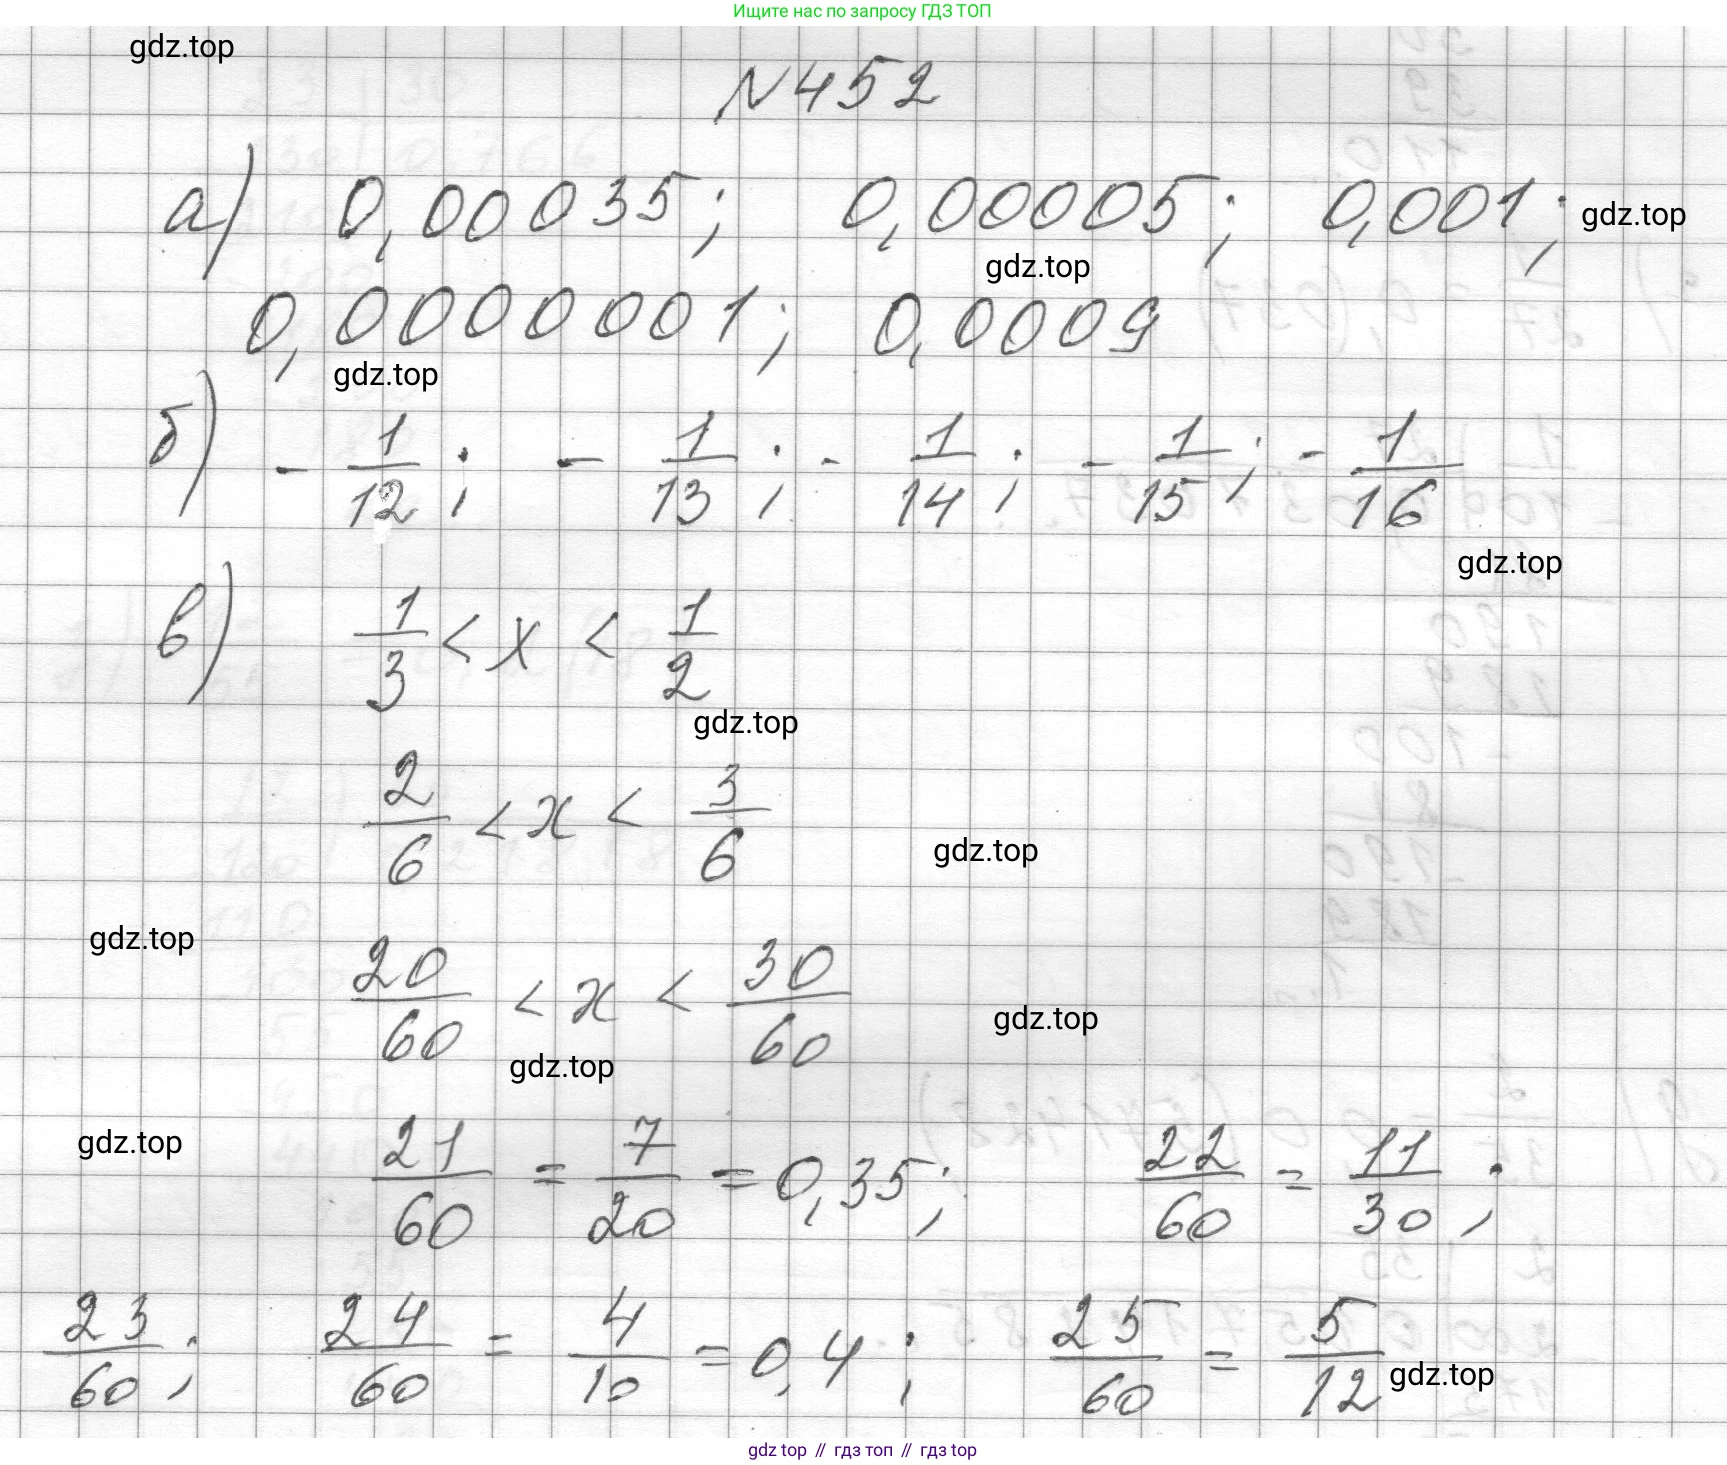 Ищите нас по запросу ГДЗ ТОП
gdz.top
N452
а) 0,00035; 0,00005; 0,001; gdz.top
gdz.top
0,0000001; 0,0009
gdz.top
б) - 1/12; - 1/13; - 1/14; - 1/15; - 1/16
gdz.top
в) 1/3 < x < 1/2
gdz.top
2/6 < x < 3/6
gdz.top
gdz.top
20/60 < x < 30/60
gdz.top
gdz.top
gdz.top
21/60 = 7/20 = 0,35; 22/60 = 11/30;
23/60; 24/60 = 4/10 = 0,4; 25/60 = 5/12
gdz.top
gdz top // гдз топ // гдз top